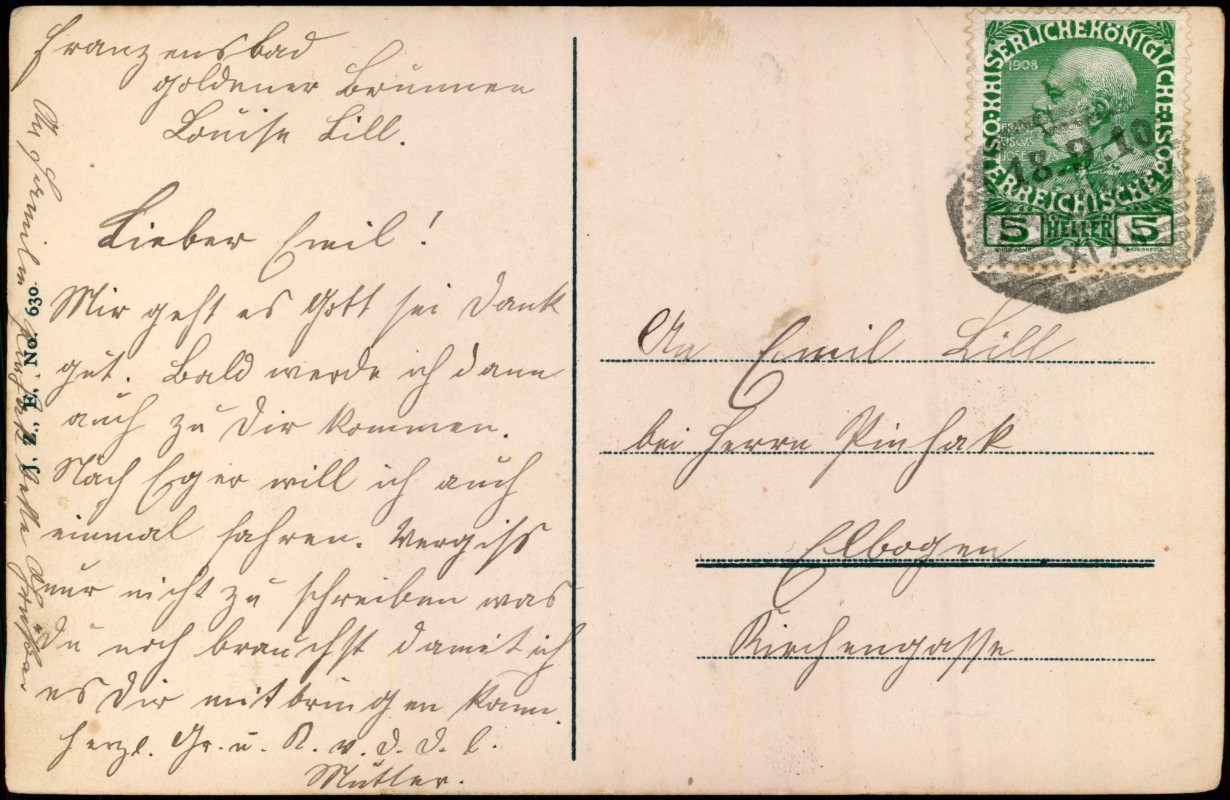 Franzensbad
goldener Brunnen
Louise Lill.
Lieber Emil!
Mir geht es Gott sei Dank
gut. Bald werde ich dann
auch zu Dir kommen.
Nach Eger will ich auch
einmal fahren. Vergiss
nur nicht zu schreiben was
Du noch brauchst damit ich
es Dir mitbringen kann.
herzl. Gr. u. K. v. d. d. l.
Mutter.
An
J. Z., E., No. 630.
KAISERLICHE KÖNIGLICHE ÖSTERREICHISCHE POST
1908
FRANCISCUS JOSEPH I
5 HELLER 5
18.9.10
An Emil Lill
bei Herrn Pinhak
Elbogen
Kirchengasse